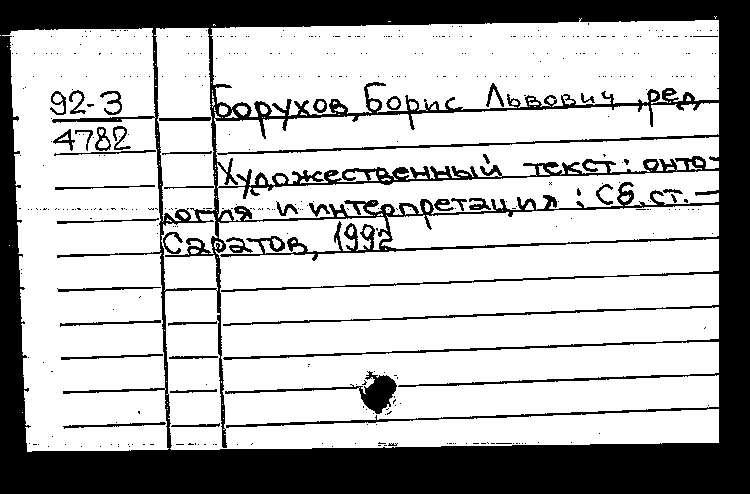 92-3 Борухов, Борис Львович, ред.
4782
Художественный текст: онто-
логия и интерпретация: Сб. ст. —
Саратов, 1992